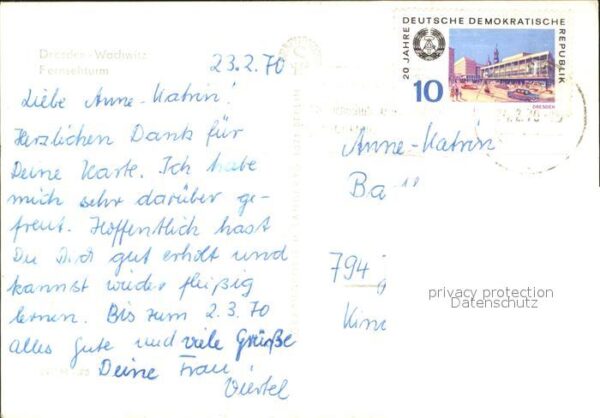 Dresden-Wachwitz
Fernsehturm
23.2.70
Liebe Anne-Katrin!
Herzlichen Dank für
Deine Karte. Ich habe
mich sehr darüber ge-
freut. Hoffentlich hast
Du Dich gut erholt und
kannst wieder fleißig
lernen. Bis zum 2.3.70
alles Gute und viele Grüße
Deine Frau
Viertel
20 JAHRE DEUTSCHE DEMOKRATISCHE REPUBLIK
10
DRESDEN
2.70
Anne-Katrin
Ba
794
privacy protection
Datenschutz